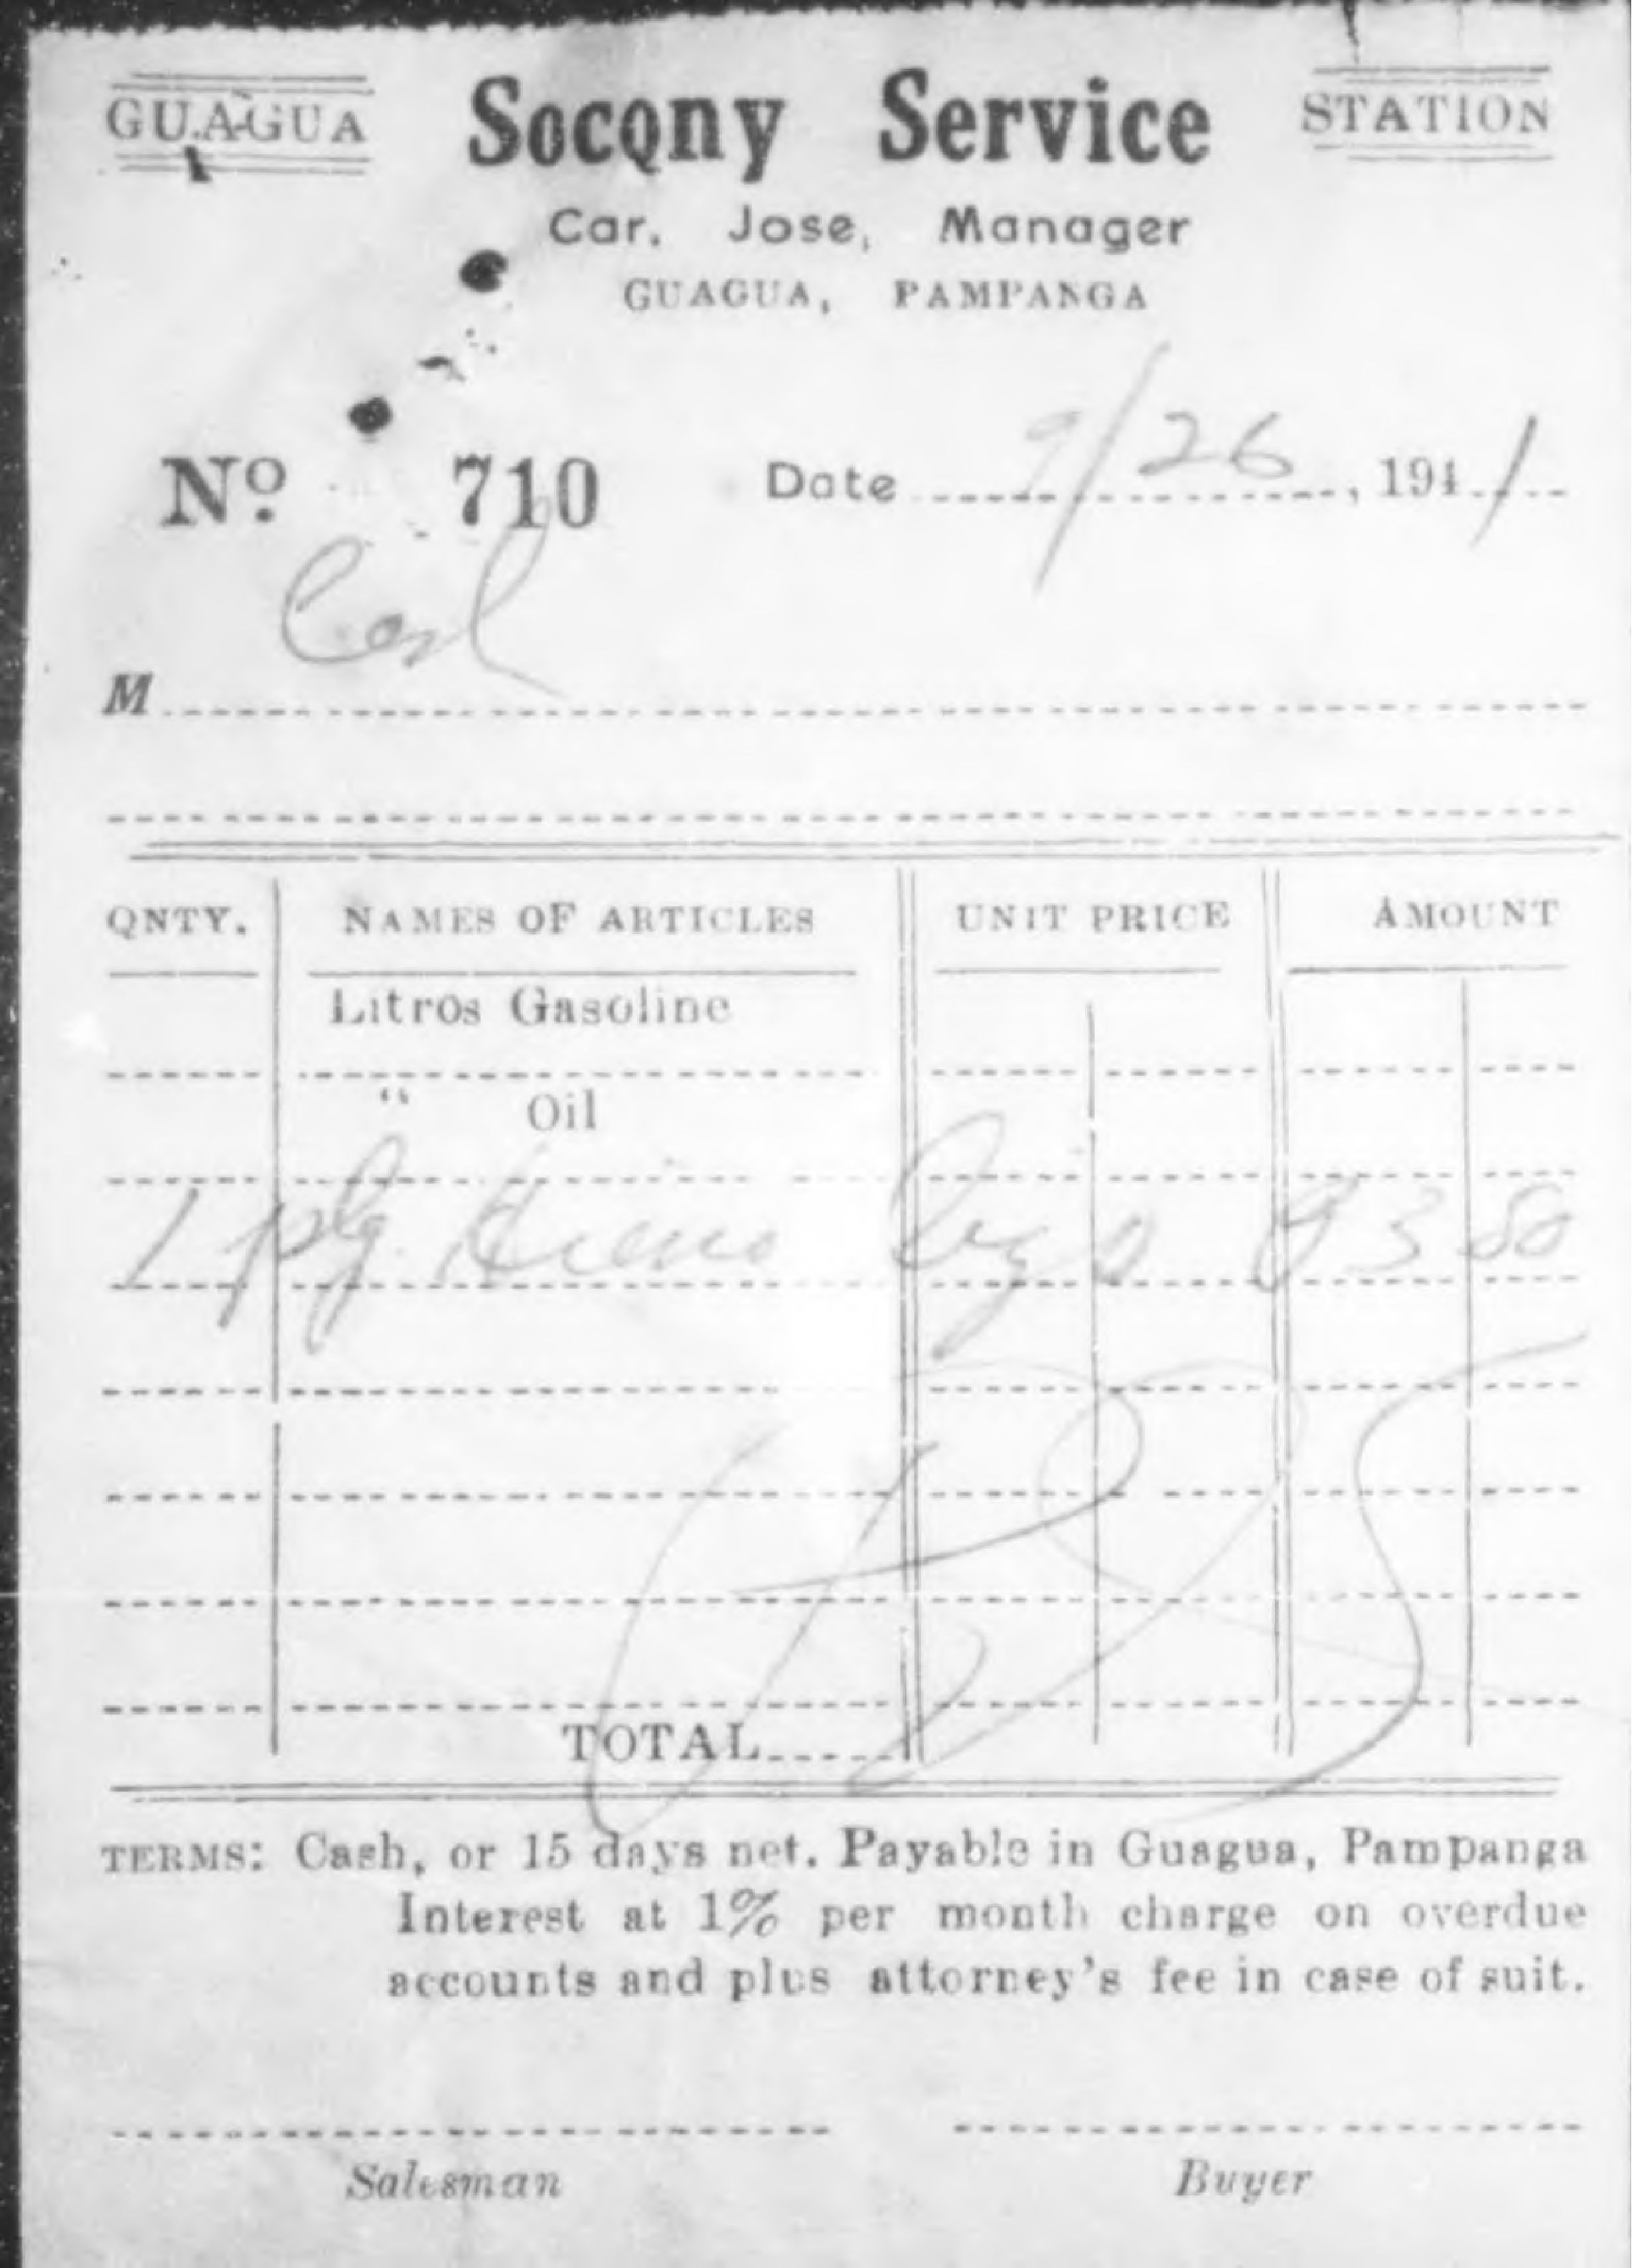 GUAGUA Socony Service STATION
Car. Jose, Manager
GUAGUA, PAMPANGA
No. 710 Date 9/26, 1941
Cash
M
QNTY. NAMES OF ARTICLES UNIT PRICE AMOUNT
Litros Gasoline
" Oil
1 3 80
TOTAL
TERMS: Cash, or 15 days net. Payable in Guagua, Pampanga
Interest at 1% per month charge on overdue
accounts and plus attorney's fee in case of suit.
Salesman Buyer